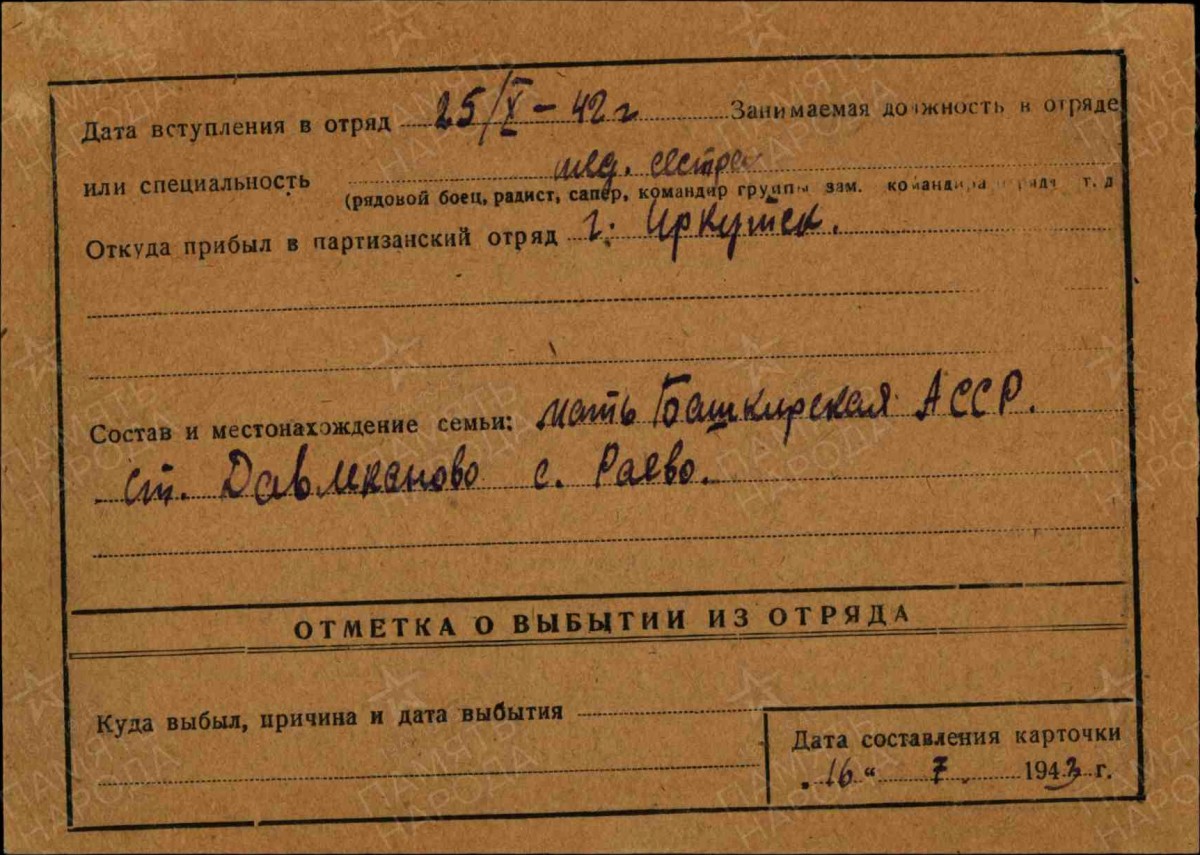 Дата вступления в отряд 25/X – 42 г Занимаемая должность в отряде
или специальность мед. сестра
(рядовой боец, радист, сапер, командир группы зам. командира отряда т. д
Откуда прибыл в партизанский отряд г. Иркутск.
Состав и местонахождение семьи: мать Башкирская АССР.
ст. Давлеканово с. Раево.
ОТМЕТКА О ВЫБЫТИИ ИЗ ОТРЯДА
Куда выбыл, причина и дата выбытия
Дата составления карточки
„16“ 7. 1943 г.
ПАМЯТЬ НАРОДА